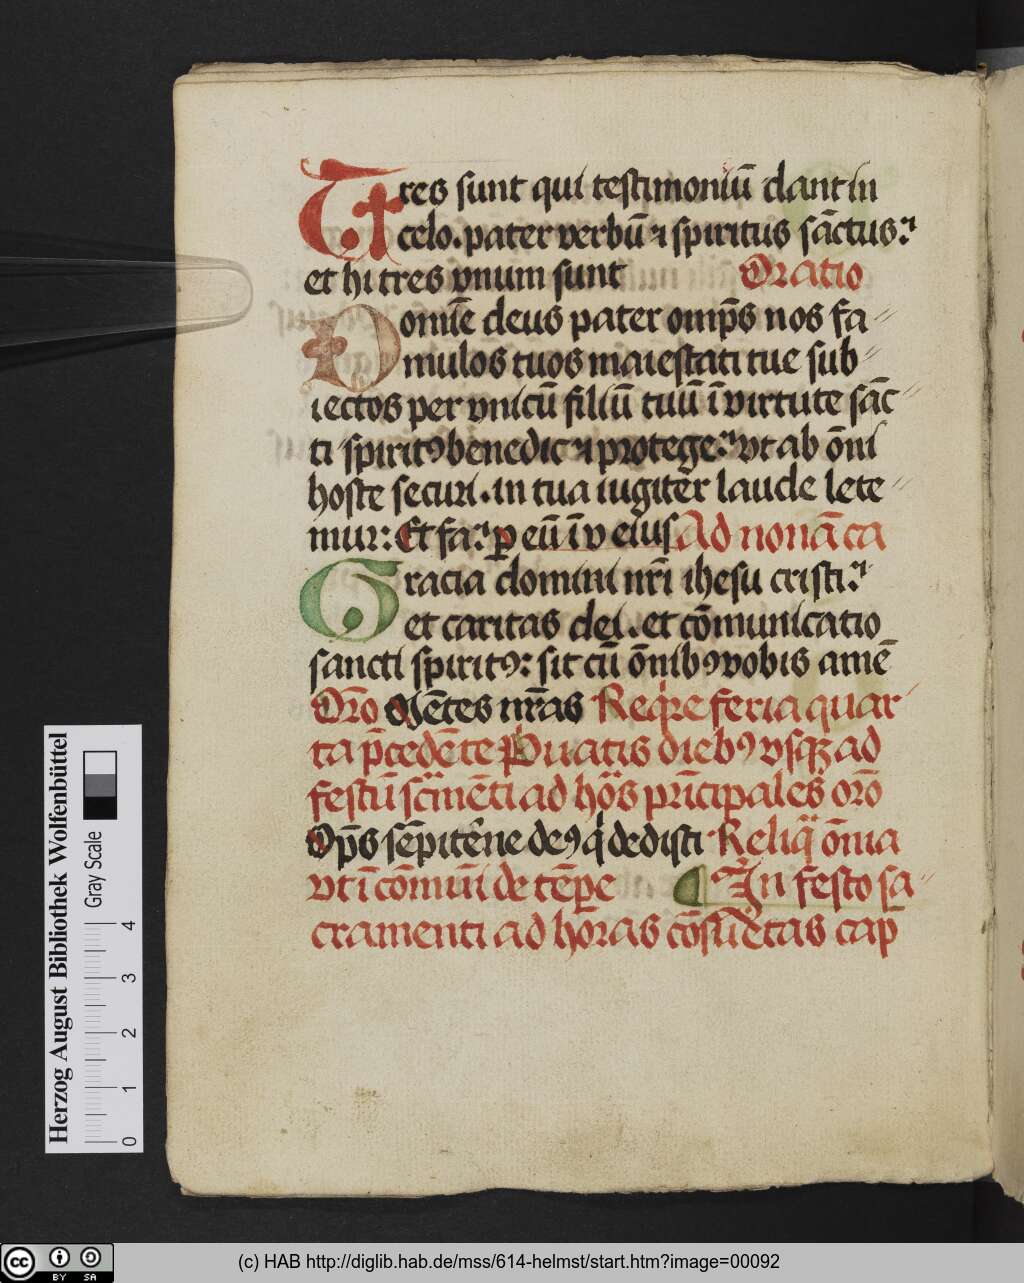 Tres sunt qui testimoniū dant in
celo. pater verbū ⁊ spiritus sāctus:
et hi tres vnum sunt Oratio
Domīe deus pater omp̄s nos fa-
mulos tuos maiestati tue sub-
iectos per vnicū filiū tuū ī virtute sāc-
ti spiritꝰ benedic ⁊ protege: vt ab ōni
hoste securi. in tua iugiter laude lete-
mur: Et fa: ꝑ eū ī v eius Ad nonā ca
Gracia domini nr̄i ihesu cristi:
et caritas dei. et cōmunicatio
sancti spiritꝰ: sit cū ōnibꝰ vobis amē
Oro Mētes nr̄as Reqͥre feria quar-
ta p̄cedēte Pͥuatis diebꝰ vsqꝫ ad
festū scͣmēti ad hoͣs prīcipales oro
Op̄s sēpitērne deꝰ qͥ dedisti Reliqͣ ōnia
vt ī cōmuni de tēpe In festo sa-
cramenti ad horas cōsuetas cap
Herzog August Bibliothek Wolfenbüttel
Gray Scale
0 1 2 3 4
cc BY SA
(c) HAB http://diglib.hab.de/mss/614-helmst/start.htm?image=00092